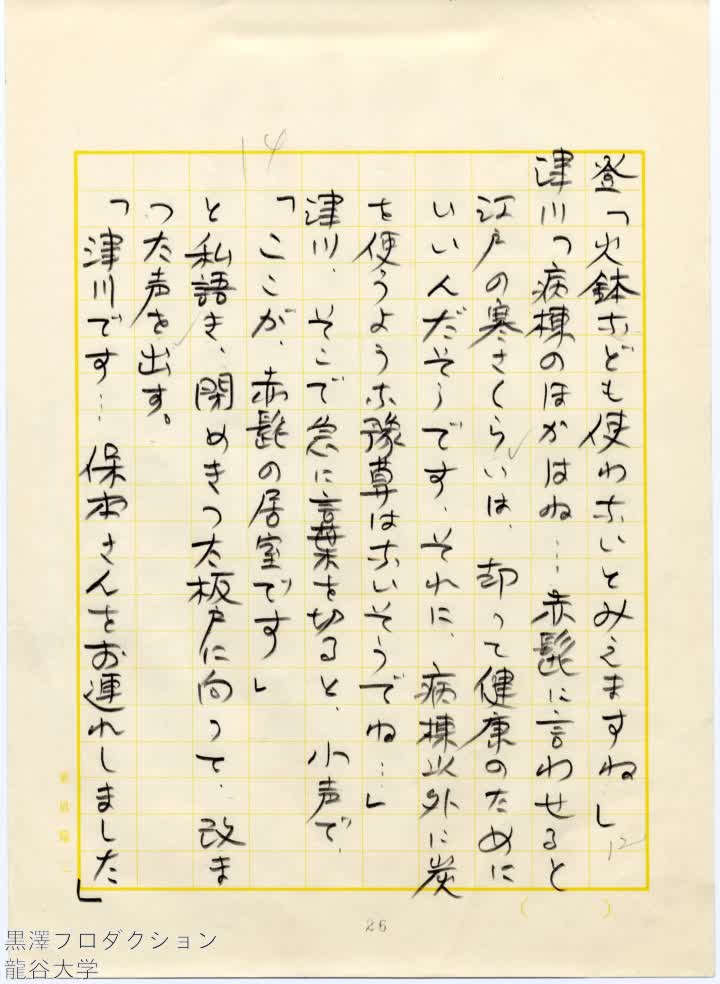 14
登「火鉢なども使わないとみえますね」
12
津川「病棟のほかはね…赤髭に言わせると
江戸の寒さくらいは、却って健康のために
いいんだそうです、それに、病棟以外に炭
を使うような豫算はないそうでね…」
津川、そこで急に言葉を切ると、小声で、
「ここが、赤髭の居室です」
と私語き、閉めきった板戸に向って、改ま
った声を出す。
「津川です… 保本さんをお連れしました」
( )
26
黒澤プロダクション
龍谷大学